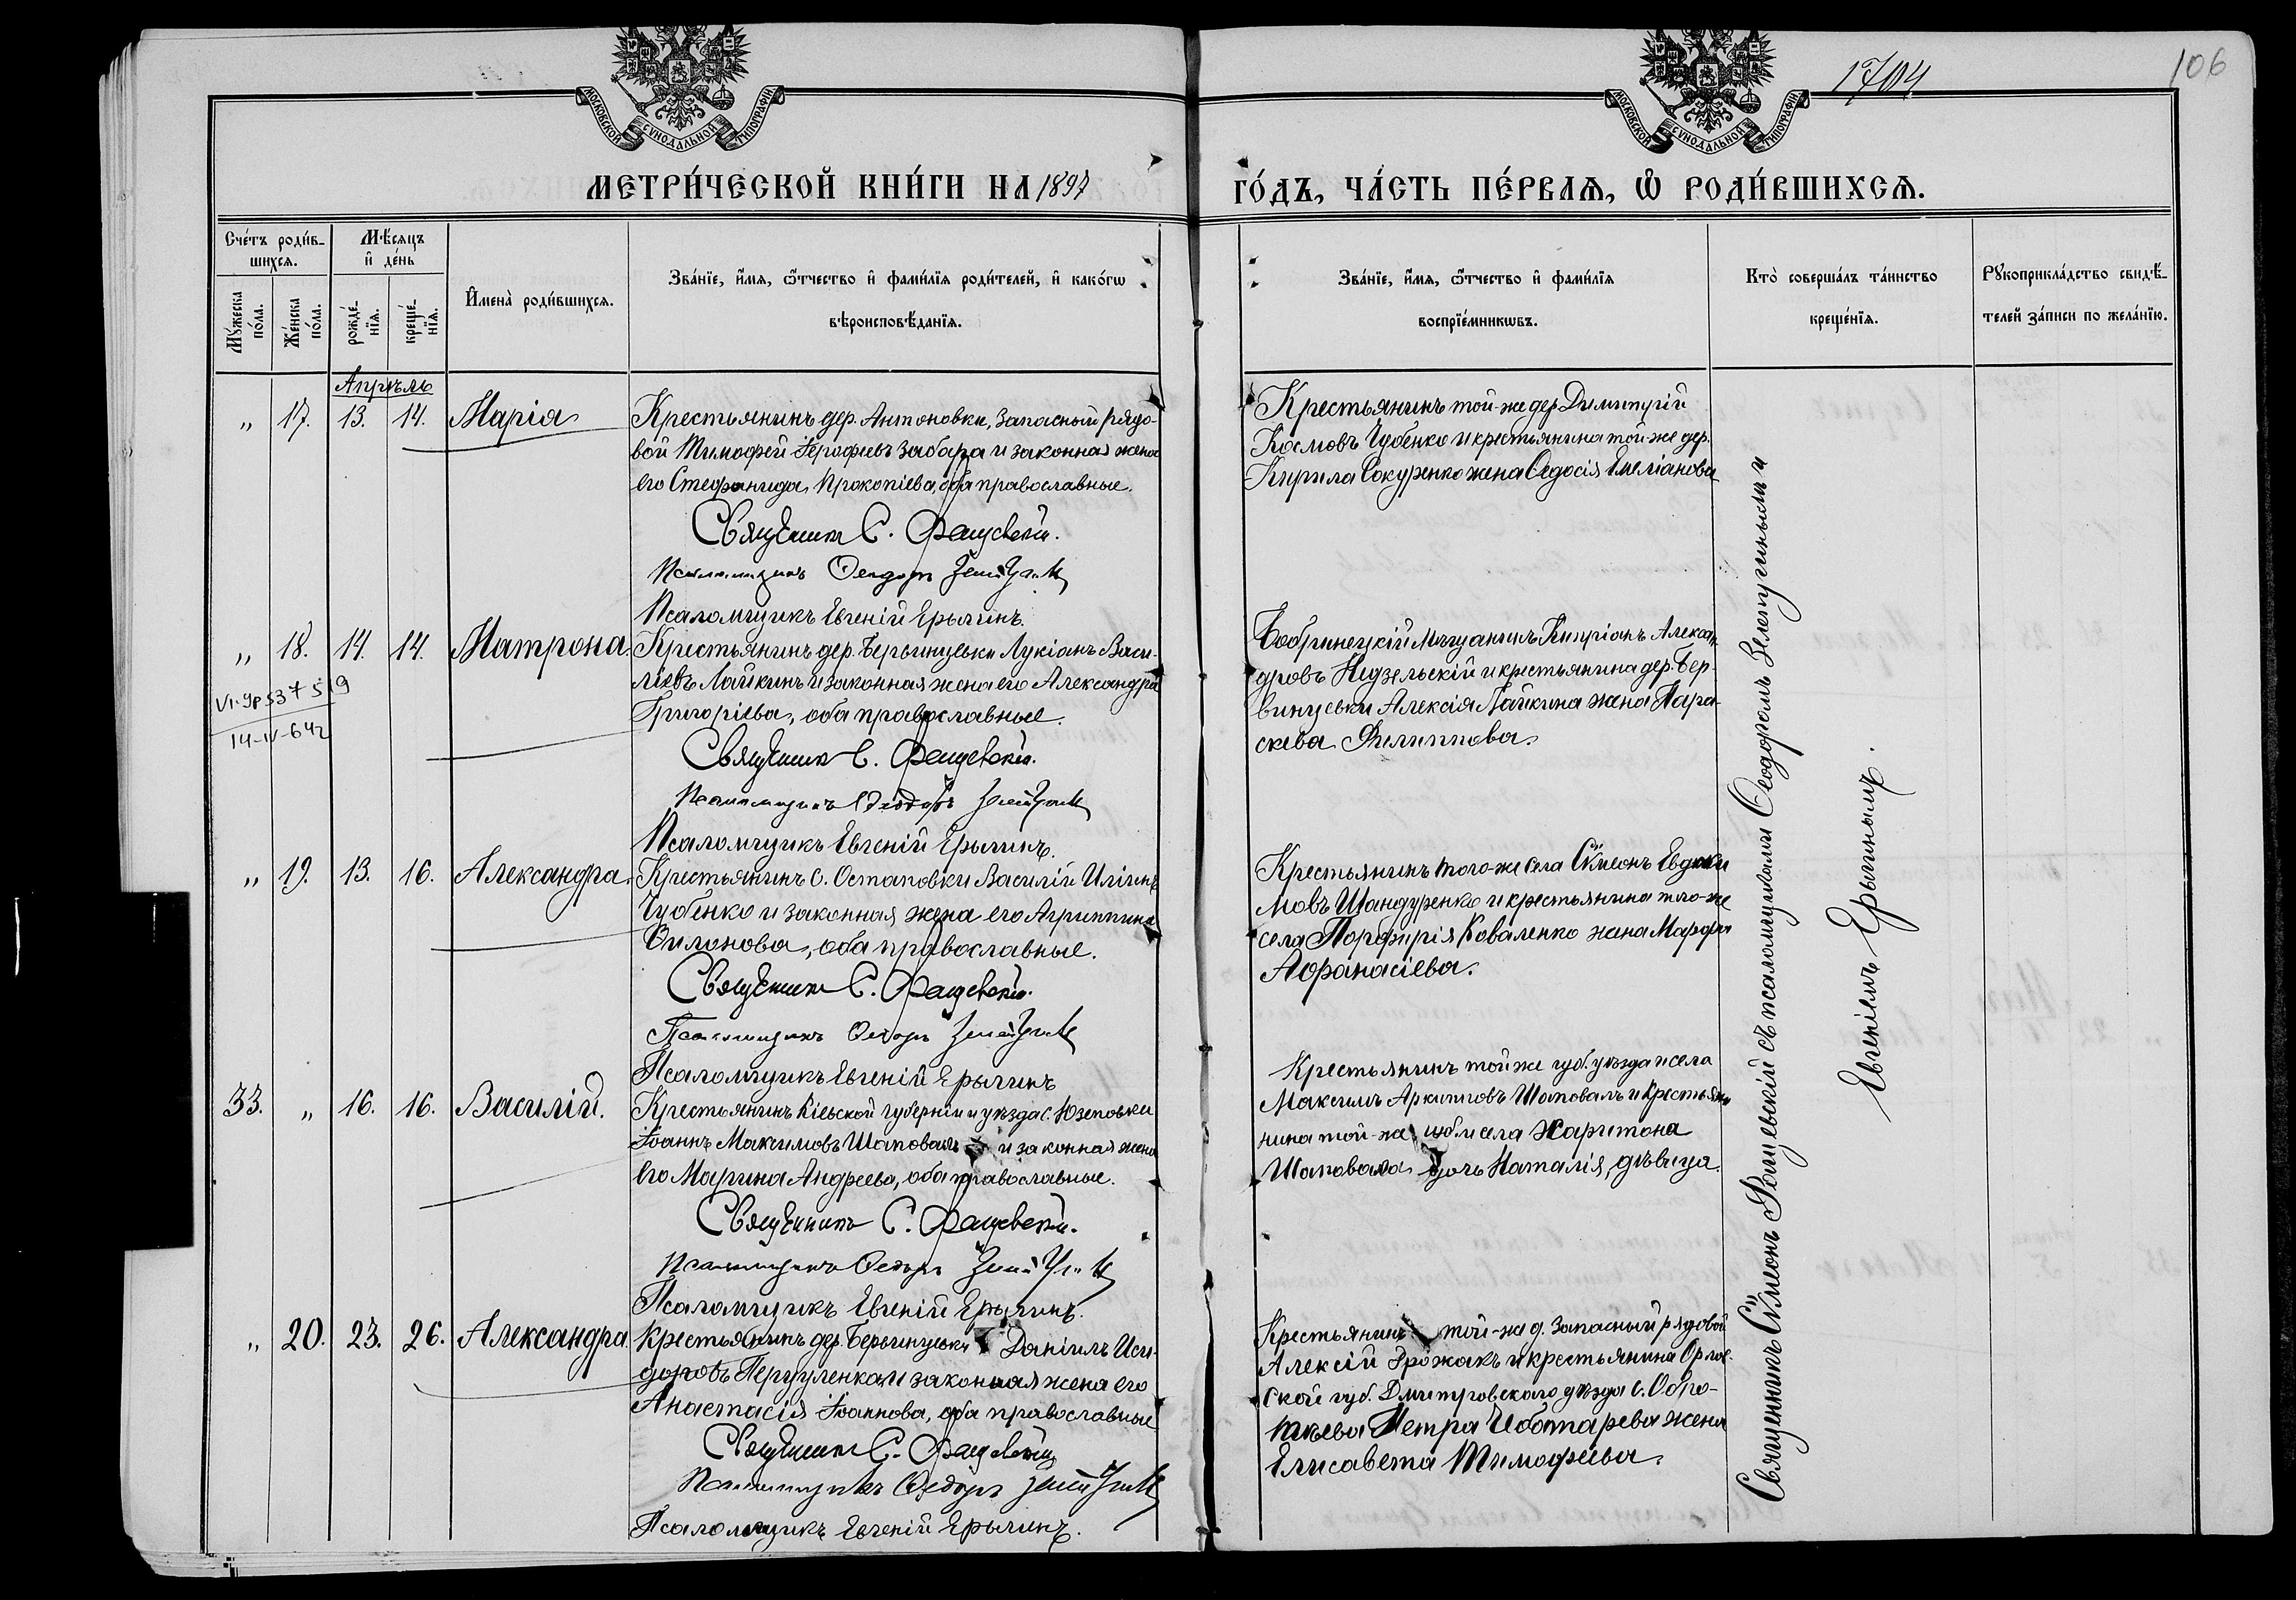 1704
106
МОСКОВСКОЙ СѴНОДАЛЬНОЙ ТИПОГРАФІИ
МОСКОВСКОЙ СѴНОДАЛЬНОЙ ТИПОГРАФІИ
МЕТРИ́ЧЕСКОЙ КНИ́ГИ НА 1897
ГО́ДЪ, ЧА́СТЬ ПЕ́РВАЯ, Ѽ РОДИ́ВШИХСЯ.
Сче́тъ роди́в-
шихся.
Му́жеска
по́ла.
Же́нска
по́ла.
Мѣ́сяцъ
и҆ де́нь
рожде́-
нїя.
креще́-
нїя.
И҆мена̀ роди́вшихся.
Зва́нїе, и҆́мя, ѻ҆́тчество и҆ фами́лїя роди́телей, и҆ како́гѡ
вѣроисповѣ́данїя.
Зва́нїе, и҆́мя, ѻ҆́тчество и҆ фами́лїя
воспрїе́мникѡвъ.
Кто̀ соверша́лъ та́инство
креще́нїя.
Рꙋкоприкла́дство свидѣ́-
телей за́писи по жела́нїю.
Апрѣль
„ 17. 13. 14. Марія
Крестьянинъ дер. Антоновки, запасный рядо-
вой Тимофей Іерофеевъ Забара и законная жена
его Стефанида Прокопіева, оба православные.
Священникъ С. Фащевскій.
Псаломщикъ Феодоръ
Псаломщикъ Евгеній Ерыгинъ.
Крестьянинъ той-же дер. Димитрій
Космовъ Чубенко и крестьянина той-же дер.
Кирила Сокуренко жена Ѳедосія Емеліанова
„ 18. 14. 14. Матрона.
14-IV-64г
Крестьянинъ дер. Бервинцевки Лукіанъ Васи-
ліевъ Лайкинъ и законная жена его Александра
Григоріева, оба православные.
Священникъ С. Фащевскій.
Псаломщикъ Ѳеодоръ
Псаломщикъ Евгеній Ерыгинъ.
Бобринецкій мѣщанинъ Кипріанъ Алексан-
дровъ Недзельскій и крестьянина дер. Бер-
винцевки Алексія Лайкина жена Пара-
скева Филиппова.
„ 19. 13. 16. Александра.
Крестьянинъ с. Остаповки Василій Иліинъ
Чубенко и законная жена его Агриппина
Филонова, оба православные.
Священникъ С. Фащевскій.
Псаломщикъ Ѳеодоръ
Псаломщикъ Евгеній Ерыгинъ
Крестьянинъ того-же села Сѵмеонъ Евдоки-
мовъ Шандуренко и крестьянина того-же
села Порфирія Коваленко жена Марфа
Афанасіева.
33. „ 16. 16. Василій.
Крестьянинъ Кіевской губерніи и уѣзда с. Юзеповки
Іоаннъ Максимовъ Шаповалъ и законная жена
его Марина Андреева, оба православные.
Священникъ С. Фащевскій.
Псаломщикъ Ѳеодоръ
Псаломщикъ Евгеній Ерыгинъ.
Крестьянинъ той же губ. уѣзда и села
Максимъ Архиповъ Шаповалъ и крестья-
нина той-же губ. и села Харитона
Шаповала дочь Наталія, дѣвица.
„ 20. 23. 26. Александра.
Крестьянинъ дер. Бервинцевки Даніилъ Иси-
доровъ и законная жена его
Анастасія Іоаннова, оба православные
Священникъ С. Фащевскій
Псаломщикъ Ѳеодоръ
Псаломщикъ Евгеній Ерыгинъ.
Крестьянинъ той-же д. запасный рядовой
Алексій Дрожакъ и крестьянина Орлов-
ской губ. Дмитровскаго уѣзда с. Обра-
тѣева Петра Чеботарева жена
Елисавета Тимофеева.
Священникъ Сѵмеонъ Фащевскій съ псаломщиками Ѳеодоромъ Зелепугинымъ и
Евгеніемъ Ерыгинымъ.